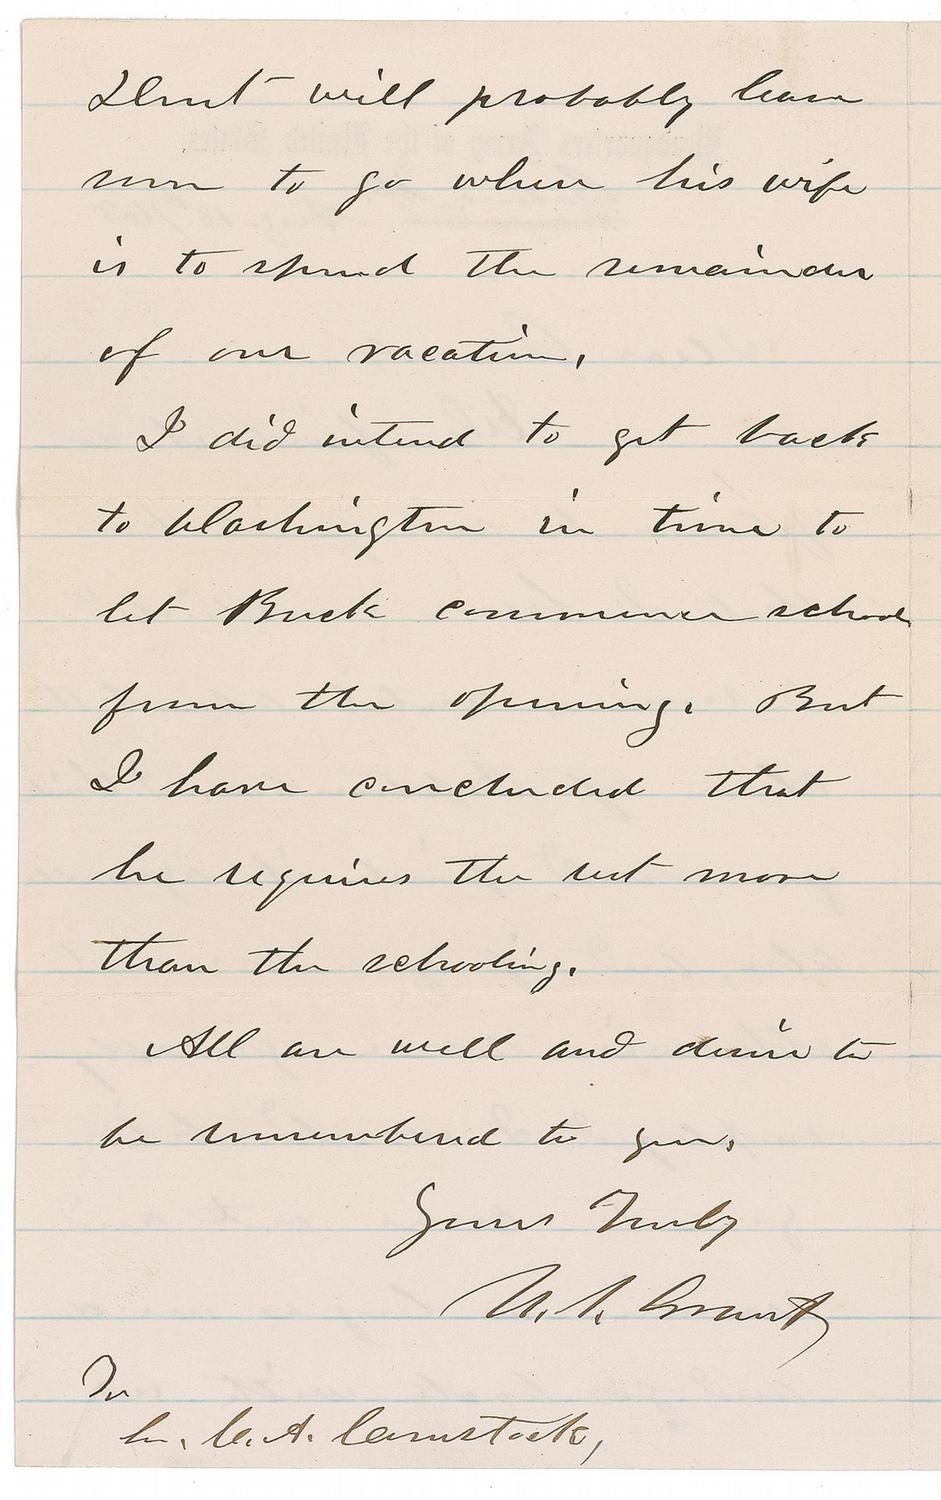 Dent will probably leave
soon to go where his wife
is to spend the remainder
of our vacation.
I did intend to get back
to Washington in time to
let Buck commence school
from the opening. But
I have concluded that
he requires the rest more
than the schooling.
All are well and desire to
be remembered to you.
Yours Truly
U. S. Grant
To
C. B. Comstock,